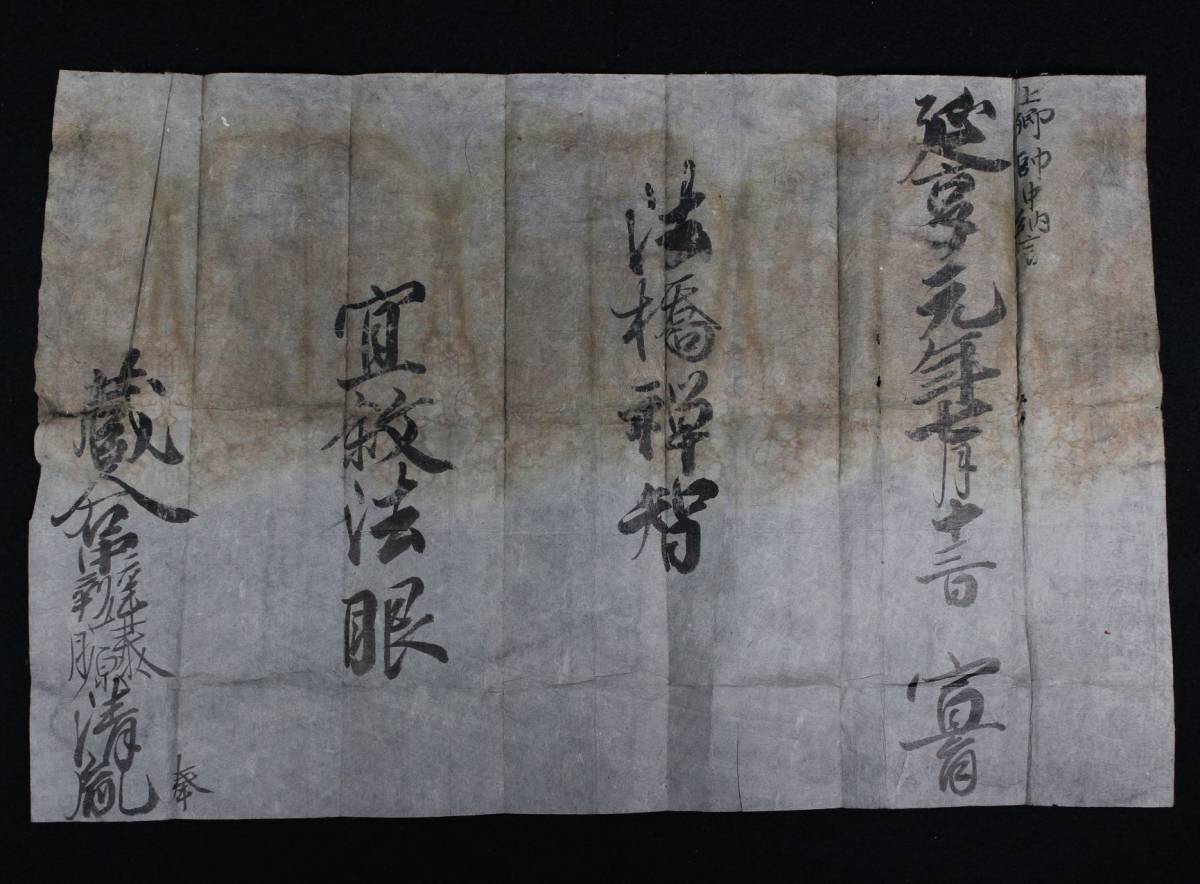 上卿 帥中納言
延享元年七月十三日 宣旨
法橋禅智
宜叙法眼
蔵人右中辨藤原清胤
奉